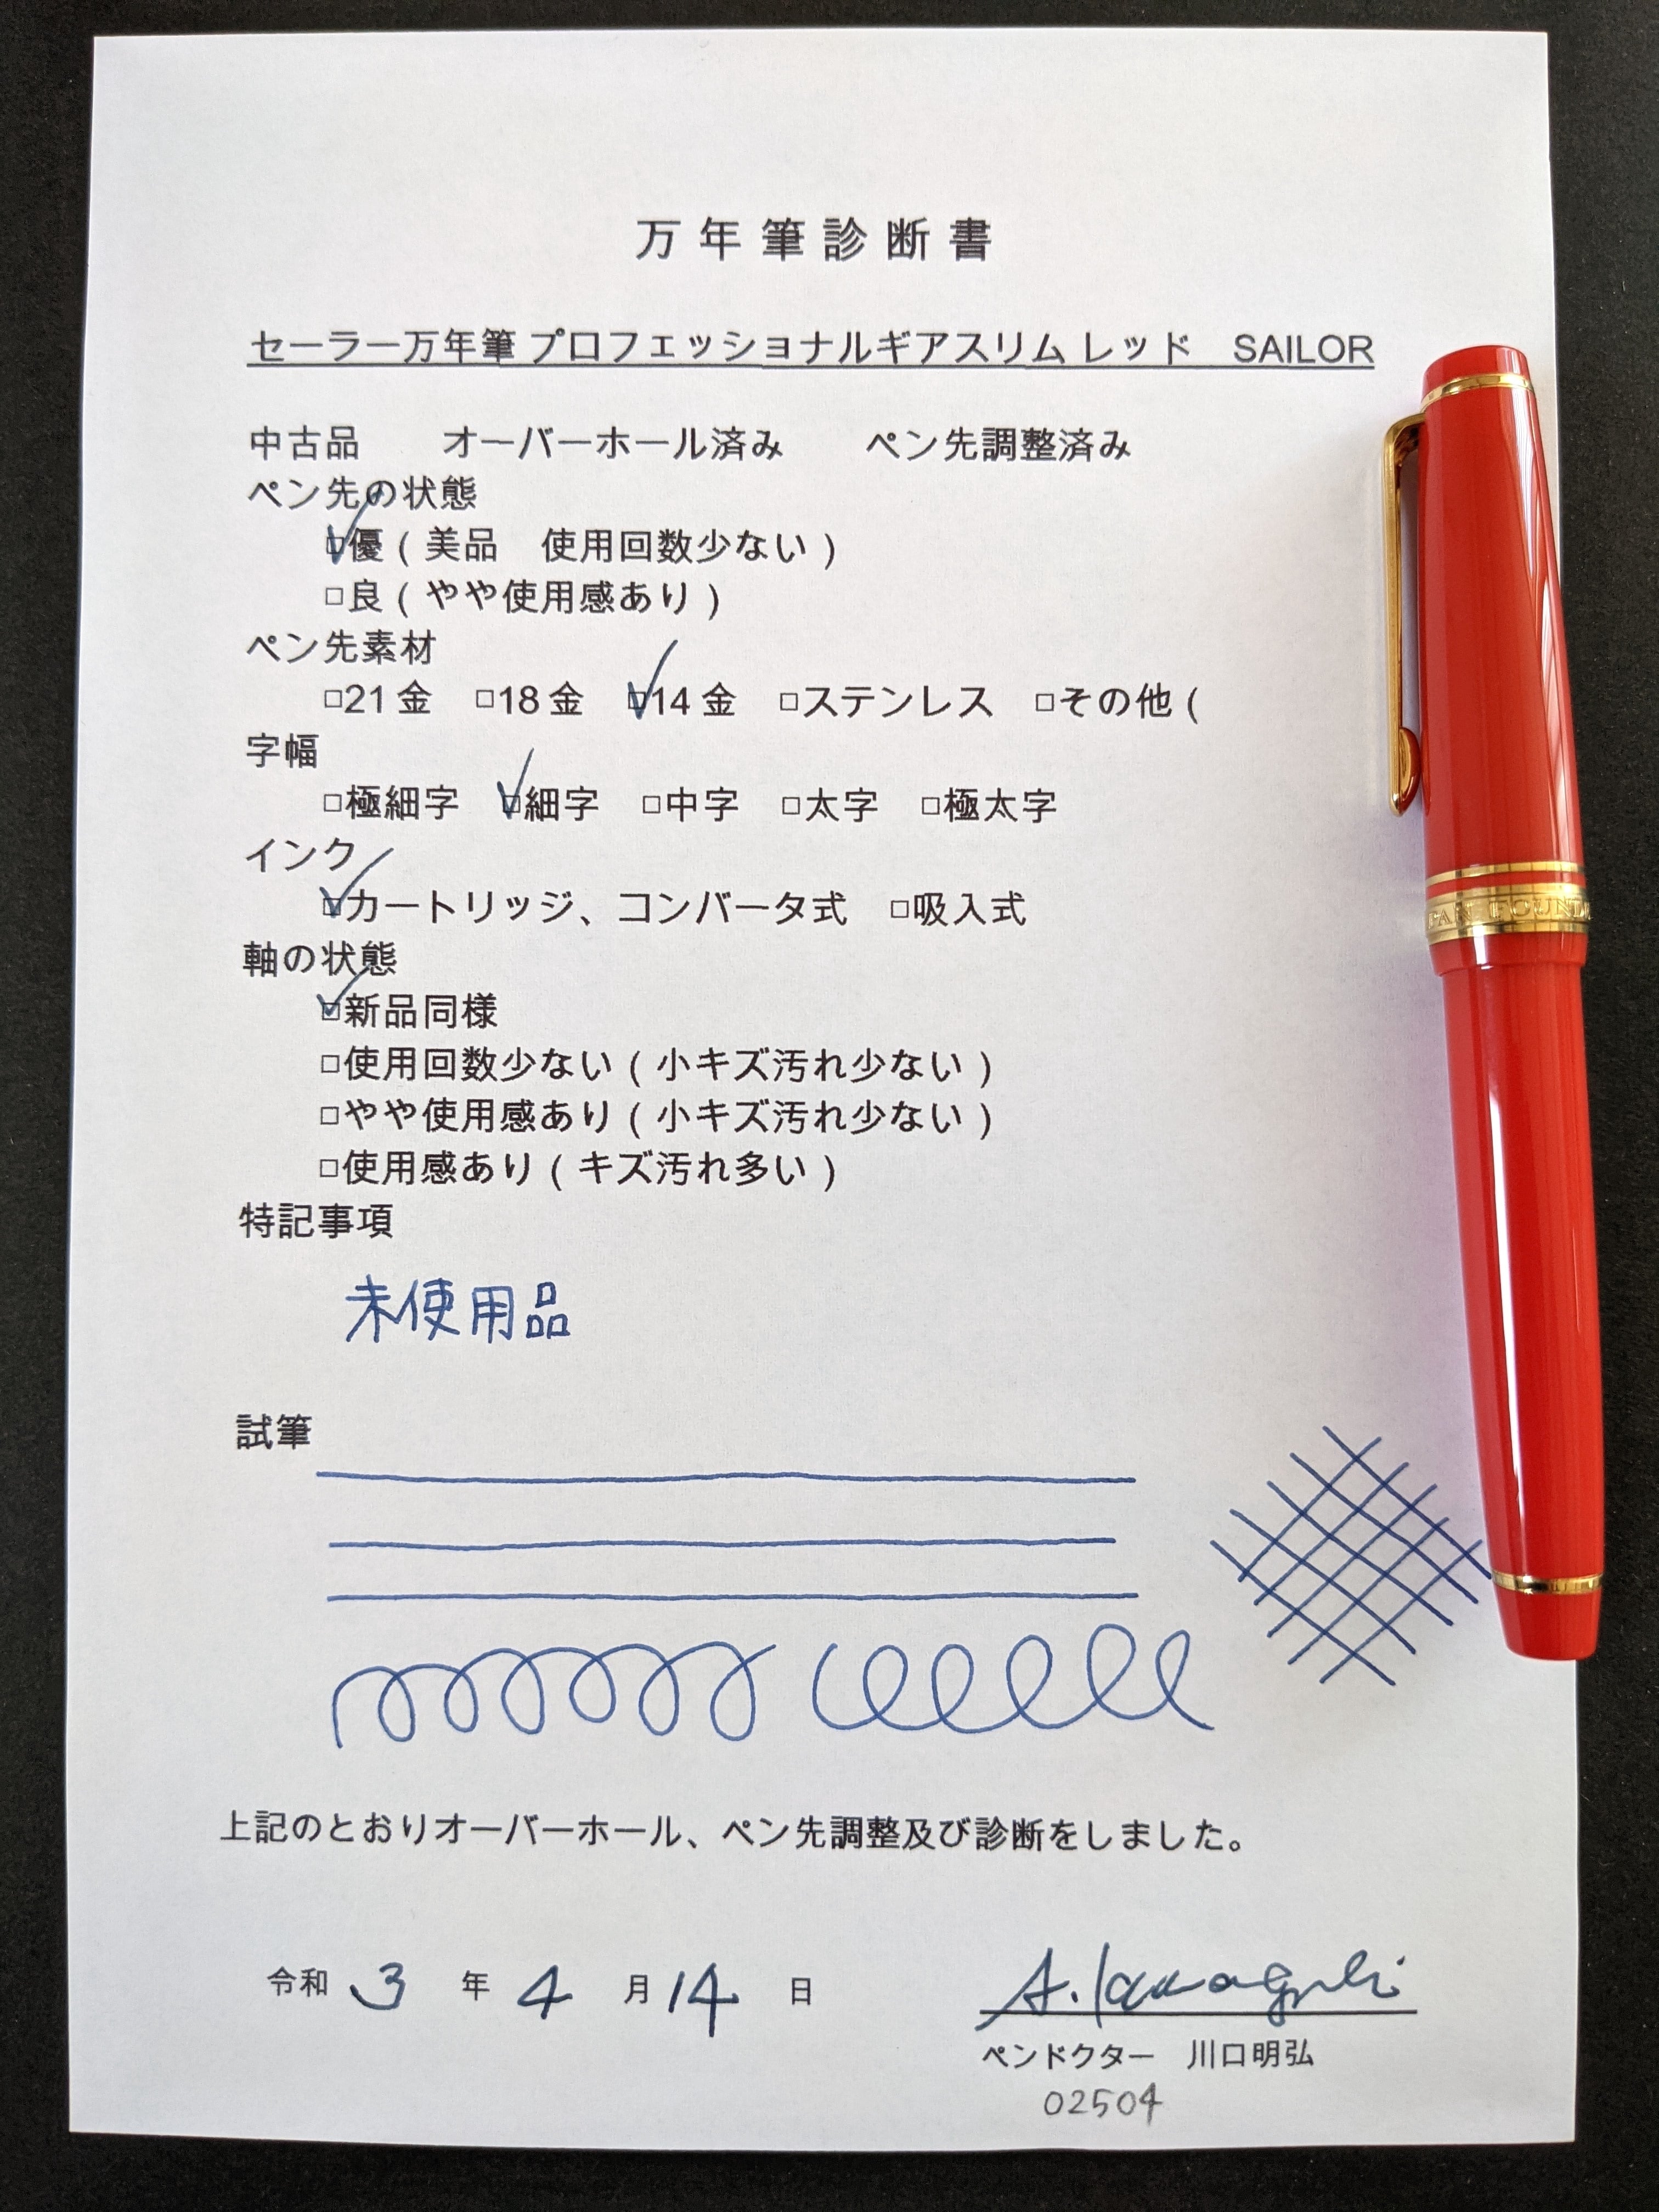 万年筆診断書
セーラー万年筆 プロフェッショナルギアスリム レッド　SAILOR
中古品　　オーバーホール済み　　ペン先調整済み
ペン先の状態
☑優（美品　使用回数少ない）
□良（やや使用感あり）
ペン先素材
□21金　□18金　☑14金　□ステンレス　□その他（
字幅
□極細字　☑細字　□中字　□太字　□極太字
インク
☑カートリッジ、コンバータ式　□吸入式
軸の状態
☑新品同様
□使用回数少ない（小キズ汚れ少ない）
□やや使用感あり（小キズ汚れ少ない）
□使用感あり（キズ汚れ多い）
特記事項
未使用品
試筆
上記のとおりオーバーホール、ペン先調整及び診断をしました。
令和 3 年 4 月 14 日
A. Kawaguchi
ペンドクター　川口明弘
02504